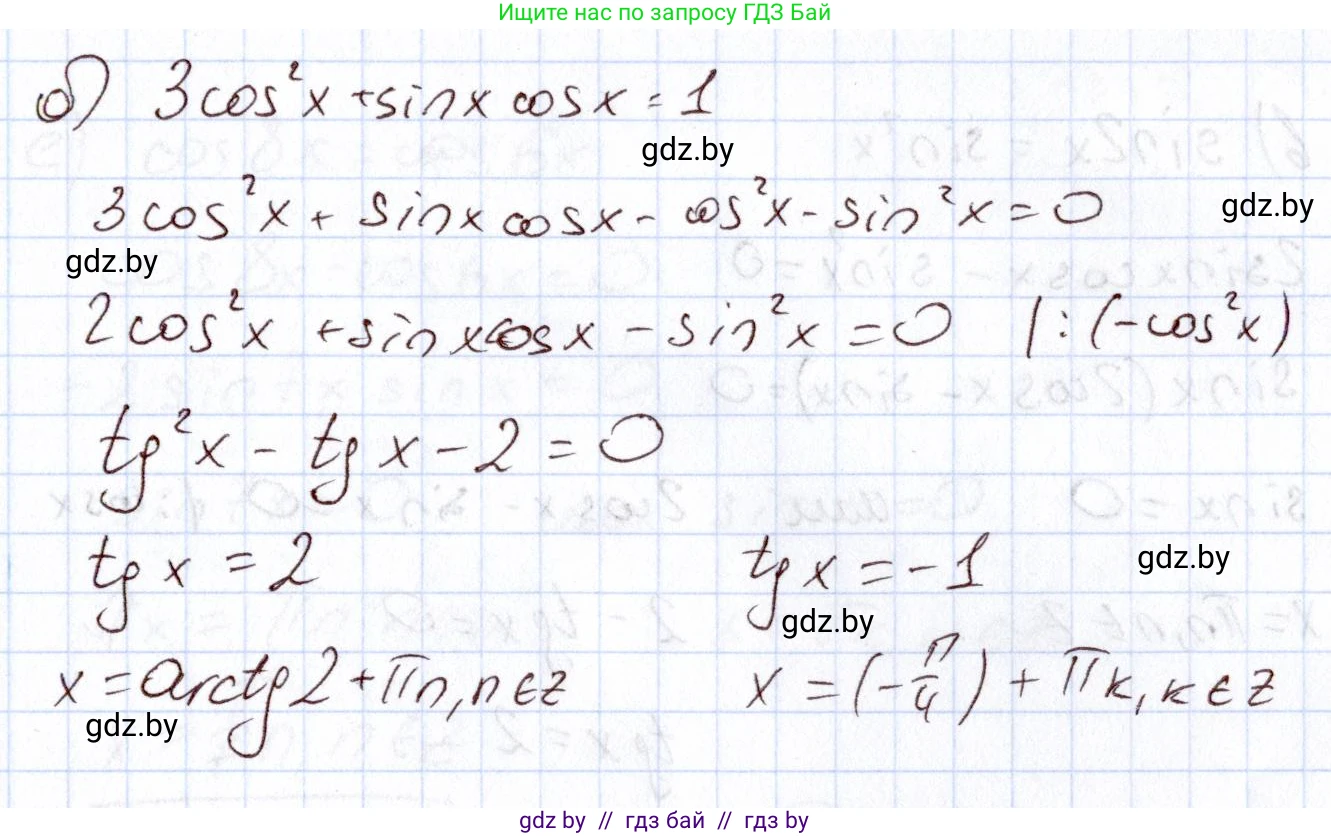 Ищите нас по запросу ГДЗ Бай
б) 3cos²x + sinx cosx = 1
gdz.by
3cos²x + sinx cosx - cos²x - sin²x = 0
gdz.by
gdz.by
2cos²x + sinxcosx - sin²x = 0 | : (-cos²x)
tg²x - tgx - 2 = 0
tgx = 2 tgx = -1
gdz.by
gdz.by
x = arctg2 + πn, n∈z x = (-π/4) + πk, k∈z
gdz.by
gdz by // гдз бай // гдз by